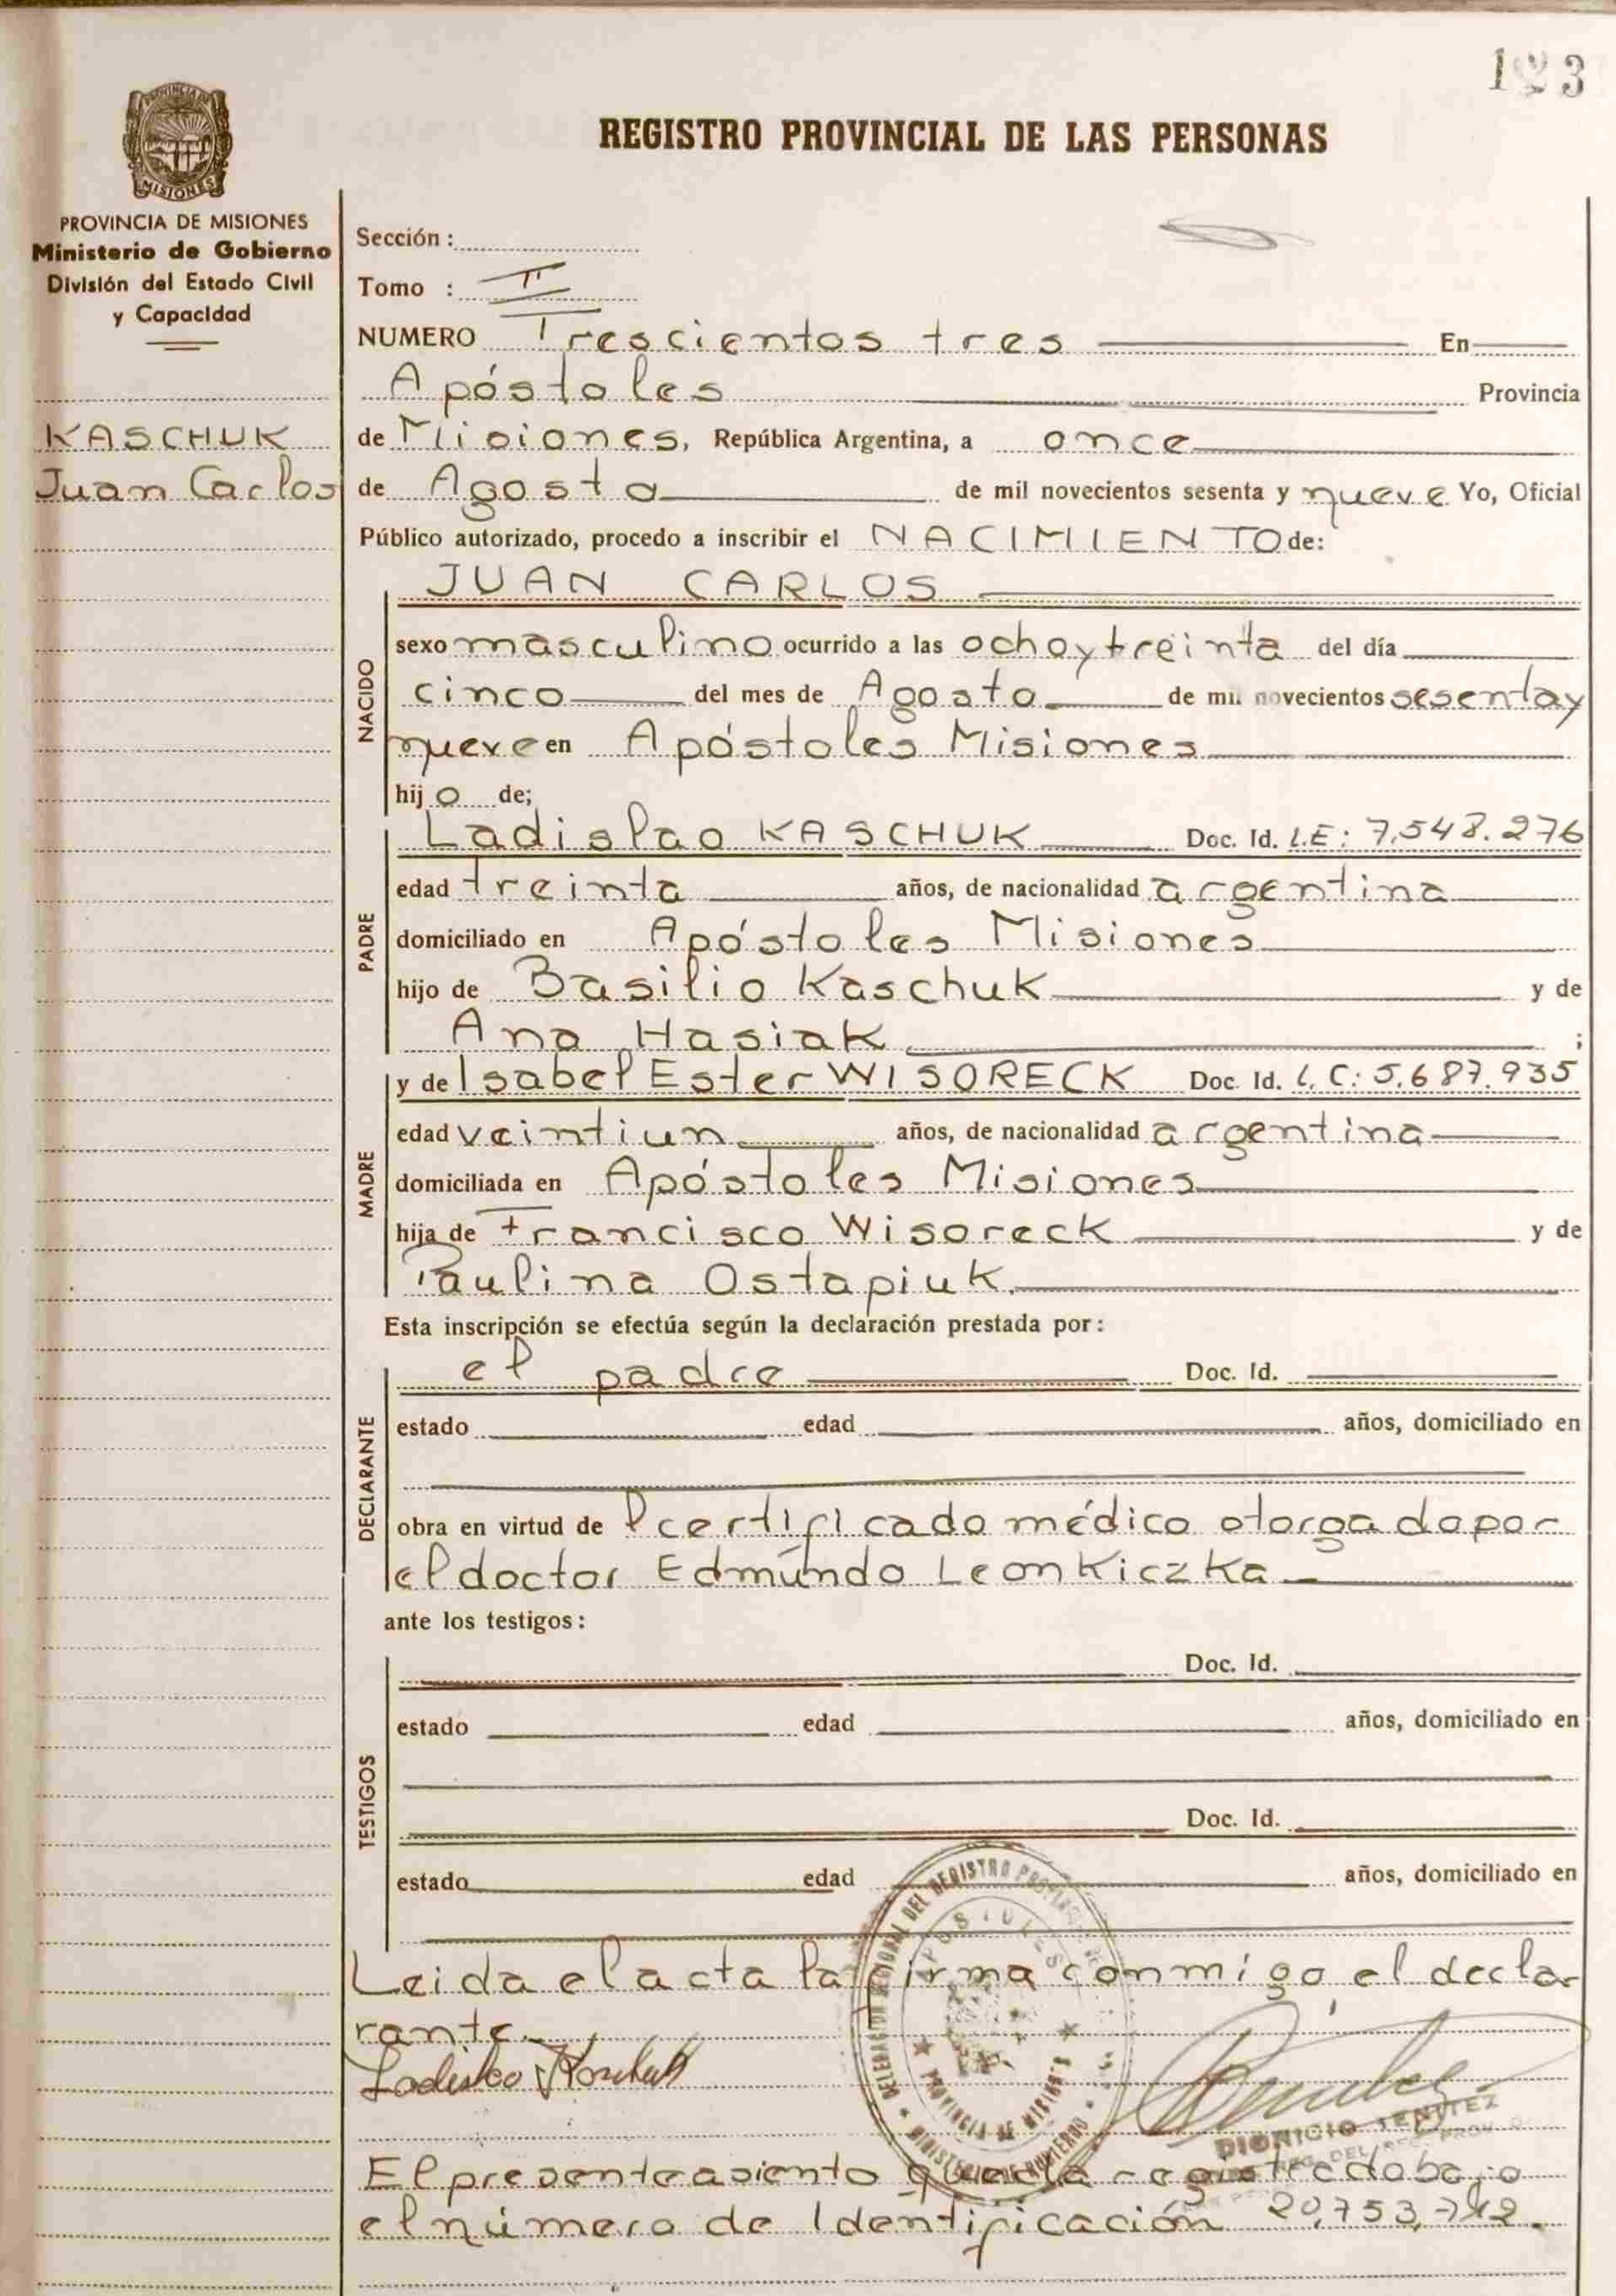 123
REGISTRO PROVINCIAL DE LAS PERSONAS
PROVINCIA DE MISIONES
Ministerio de Gobierno
División del Estado Civil
y Capacidad
KASCHUK
Juan Carlos
Sección :
Tomo : II
NUMERO Trescientos tres En
Apóstoles Provincia
de Misiones, República Argentina, a once
de Agosto de mil novecientos sesenta y nueve Yo, Oficial
Público autorizado, procedo a inscribir el NACIMIENTO de:
NACIDO
JUAN CARLOS
sexo masculino ocurrido a las ocho y treinta del día
cinco del mes de Agosto de mil novecientos sesenta y
nueve en Apóstoles Misiones
hijo de;
PADRE
Ladislao KASCHUK Doc. Id. L.E: 7.548.276
edad treinta años, de nacionalidad argentina
domiciliado en Apóstoles Misiones
hijo de Basilio Kaschuk y de
Ana Hasiak ;
MADRE
y de Isabel Ester WISORECK Doc. Id. L.C: 5.687.935
edad veintiun años, de nacionalidad argentina
domiciliada en Apóstoles Misiones
hija de Francisco Wisoreck y de
Paulina Ostapiuk.
Esta inscripción se efectúa según la declaración prestada por :
DECLARANTE
el padre Doc. Id.
estado edad años, domiciliado en
obra en virtud de l certificado médico otorgado por
el doctor Edmundo Leon Kiczka
ante los testigos :
TESTIGOS
Doc. Id.
estado edad años, domiciliado en
Doc. Id.
estado edad años, domiciliado en
Leida el acta la firma conmigo el decla-
rante.
Ladislao Kaschuk
DELEGACION REGIONAL DEL REGISTRO
APOSTOLES
PROVINCIA DE MISIONES
MINISTERIO DE GOBIERNO
DIONICIO BENITEZ
El presente asiento queda registrado bajo
el número de Identificación 20,753,712.